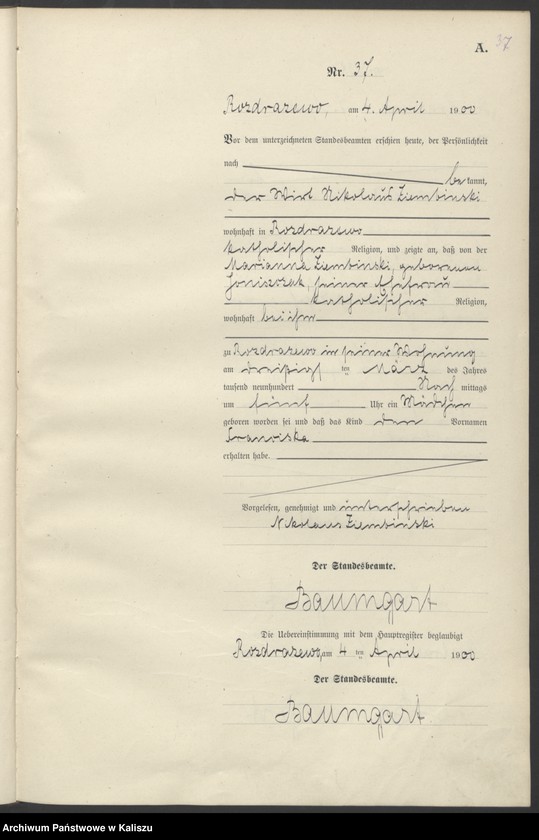 A. 37
Nr. 37.
Rozdrazewo, am 4. April 1900
Vor dem unterzeichneten Standesbeamten erschien heute, der Persönlichkeit
nach
be kannt,
der Wirt Nikolaus Ziembinski
wohnhaft in Rozdrazewo
katholischer Religion, und zeigte an, daß von der
Marianna Ziembinski, geborenen
seiner Ehefrau
katholischer Religion,
wohnhaft bei ihm
zu Rozdrazewo in seiner Wohnung
am dreißigsten ten März des Jahres
tausend neunhundert Nach mittags
um fünf Uhr ein Mädchen
geboren worden sei und daß das Kind den Vornamen
Franziska
erhalten habe.
Vorgelesen, genehmigt und unterschrieben
Nikolaus Ziembinski
Der Standesbeamte.
Baumgart
Die Uebereinstimmung mit dem Hauptregister beglaubigt
Rozdrazewo, am 4 ten April 1900
Der Standesbeamte.
Baumgart
Archiwum Państwowe w Kaliszu